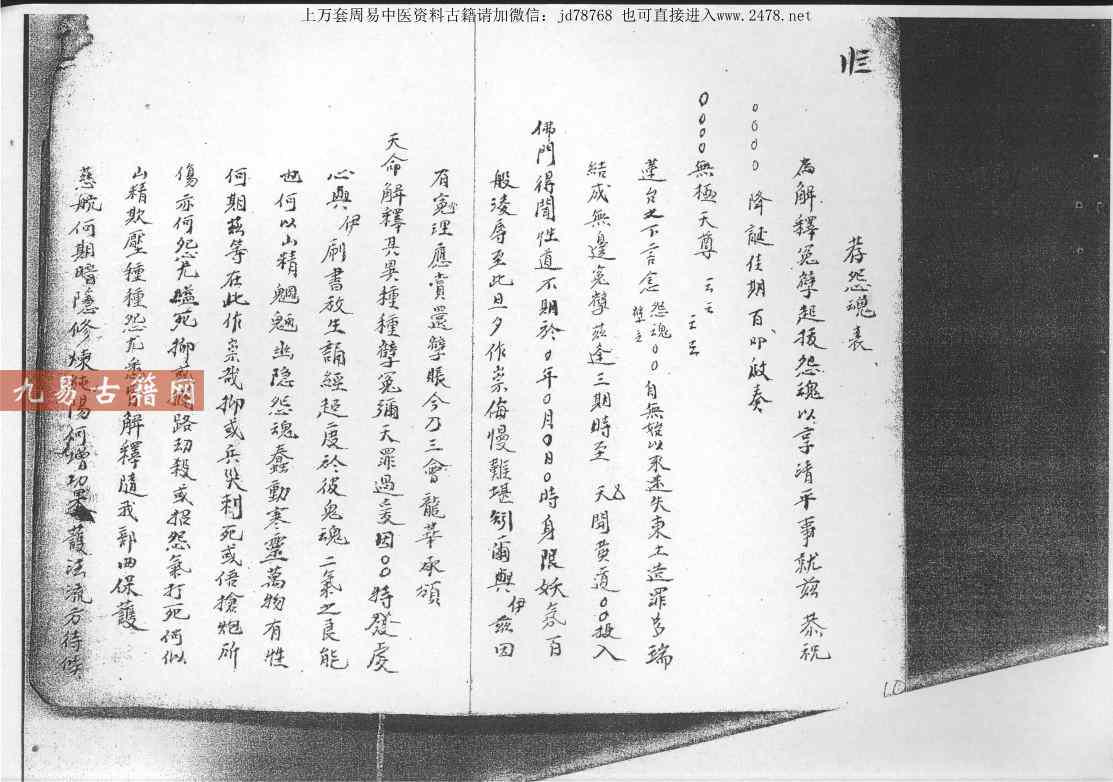 上万套周易中医资料古籍请加微信：jd78768 也可直接进入www.2478.net
荐怨魂表
為解釋冤孽超拔怨魂以享清平事就茲 恭祝
0000 降誕佳期百叩啟奏
0000無極天尊 云云 云云
蓮台之下言念 怨魂 孽主 00自無始以來迷失東土造罪多端
結成無邊冤孽茲逢三期時至 天開黃道00投入
佛門得聞性道不期於0年0月0日0時身限妖氛百
般淩辱至此旦夕作祟侮慢難堪 爾與伊茲因
有冤理應賞還孽賬今乃三會龍華承頒
天命解釋其異種種孽冤彌天罪過 因00特發虔
心與伊刷書放生誦經超度於彼鬼魂二氣之良能
也何以山精魍魎幽隐怨魂蠢動寒靈萬物有性
何期茲等在此作祟哉抑或兵災刺死或倍搶炮所
傷亦何怨尤 死抑 路劫殺或招怨氣打死何似
山精欺壓種種怨尤 解釋隨我部西保護
慈航何期暗隐修煉純陽何增功 護法流方待候
1.0
九易古籍网